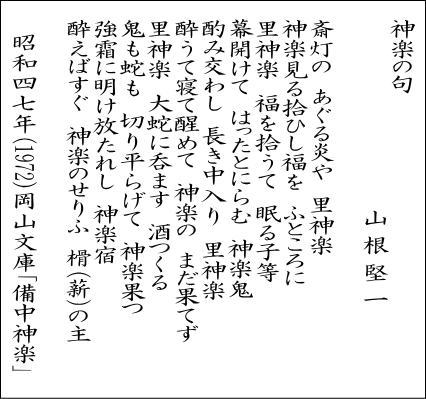 神楽の句
山根堅一
斎灯の　あぐる炎や　里神楽
神楽見る拾ひし福を　ふところに
里神楽　福を拾うて　眠る子等
幕開けて　はったとにらむ　神楽鬼
酌み交わし　長き中入り　里神楽
酔うて寝て醒めて　神楽の　まだ果てず
里神楽　大蛇に呑ます　酒つくる
鬼も蛇も　切り平らげて　神楽果つ
強霜に明け放たれし　神楽宿
酔えばすぐ　神楽のせりふ　榾(薪)の主
昭和四七年(1972)岡山文庫「備中神楽」